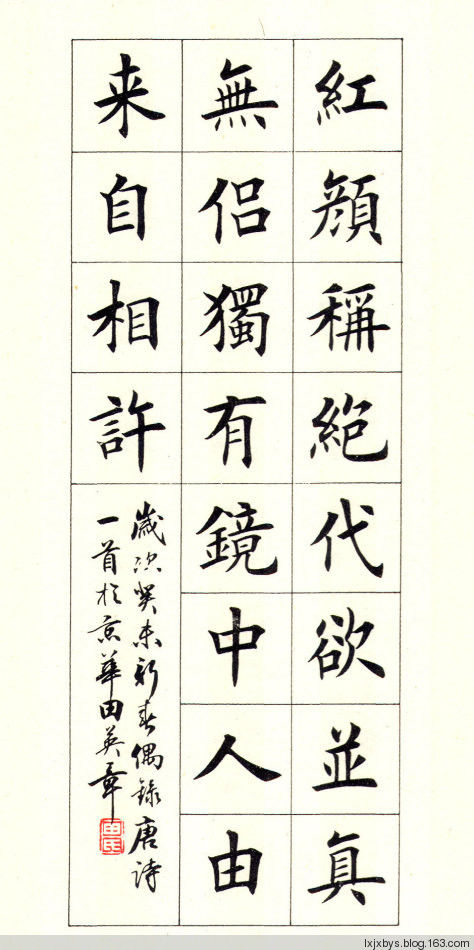 紅顔稱絶代欲並真
無侶獨有鏡中人由
来自相許
歲次癸未新春偶錄唐詩
一首於京華田英章
lxjxbys.blog.163.com